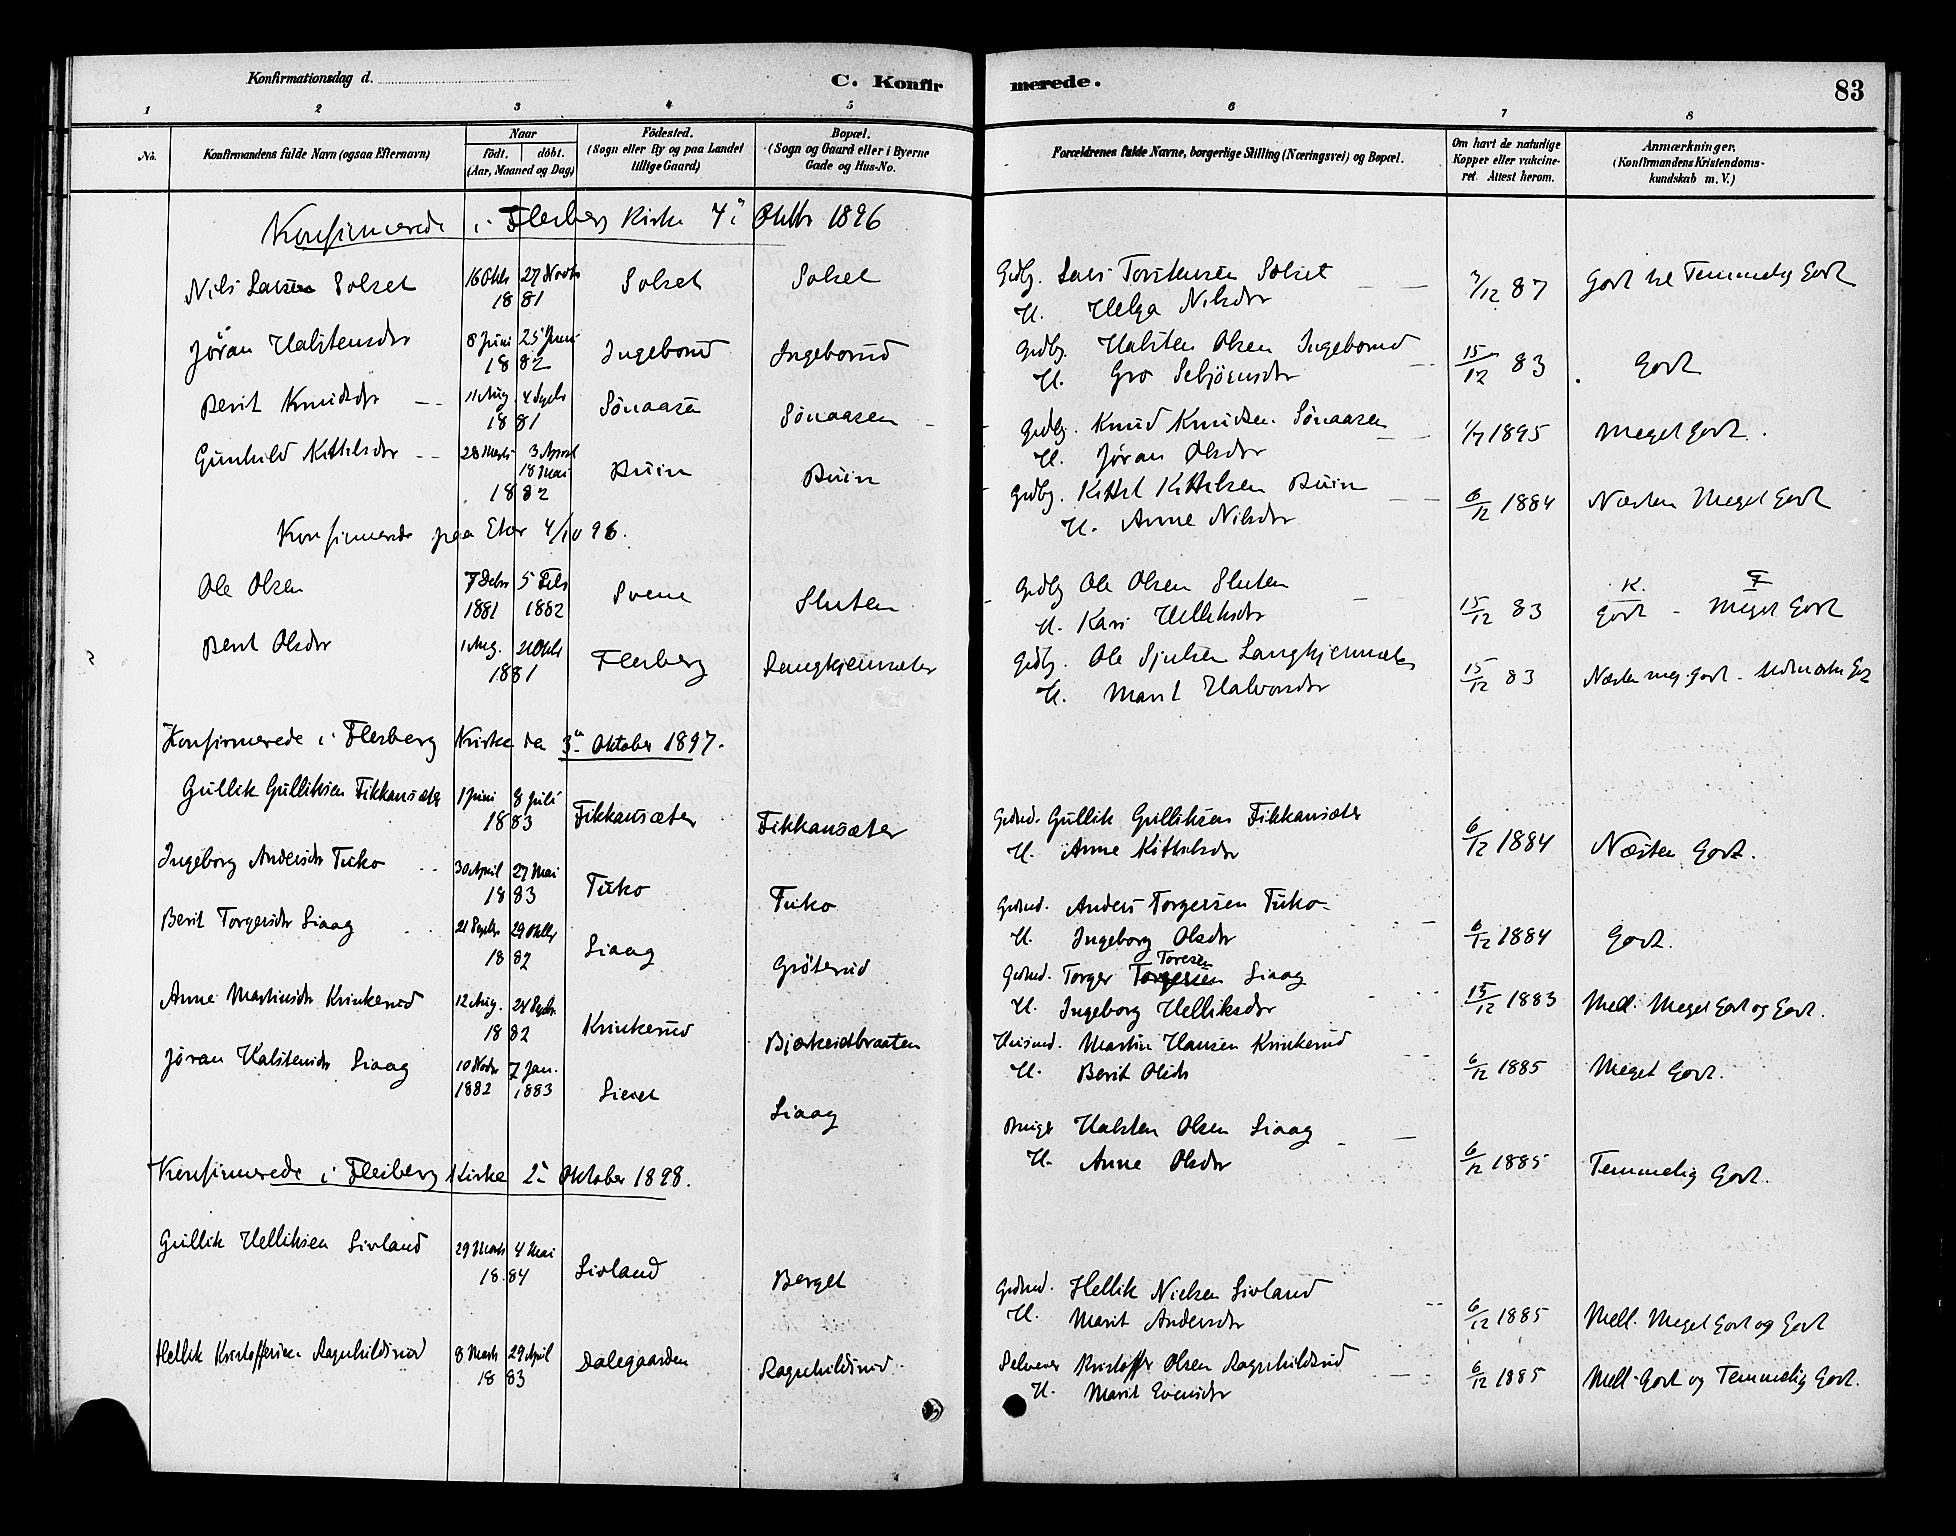 Konfirmationsdag d.
C. Konfirmerede.
83
1 2 3 4 5 6 7 8
No. Konfirmandens fulde Navn (ogsaa Efternavn) Naar Födt. döbt. (Aar, Maaned og Dag) Födested. (Sogn eller By og paa Landet tillige Gaard) Bopæl. (Sogn og Gaard eller i Byerne Gade og Hus-No. Forældrenes fulde Navne, borgerlige Stilling (Næringsvei) og Bopæl. Om havt de naturlige Kopper eller vakcineret. Attest herom. Anmærkninger, (Konfirmandens Kristendomskundskab m. V.)
Konfirmerede i Flesberg Kirke 4 Oktbr 1896
Nils Larsen Solset 16 Oktr 27 Novbr 1881 Solset Solset Gdbr. Lars Torstensen Solset H. Helga Nilsdr /12 87 Godt til Temmelig Godt
Jöran Halstensdr 8 Juni 25 Juni 1882 Ingeborud Ingeborud Grdbr. Halsten Olsen Ingeborud H. Gro Sebjörnsdr 15/12 83 Godt
Berit Knudsdr 11 Aug. 4 Septr 1881 Sönaasen Sönaasen Grdbr. Knud Knudsen Sönaasen H. Jöran Olsdr 1/7 1895 Meget godt.
Gunhild Kittilsdr 28 Marts 3 April 18 Mai 1882 Buin Buin Grdbr. Kittil Kittilsen Buin H. Anne Nilsdr 6/12 1884 Næsten Meget Godt
Konfirmerede paa 4/10 96.
Ole Olsen 7 Debr 1881 5 Feb 1882 Svene Sluten Grdbr Ole Olsen Sluten H. Kari Helliksdr 15/12 83 K. Godt - F Meget Godt
Berit Olsdr 1 Aug. 2 Oktr 1881 Flesberg Langkjernsæter Grdbr. Ole Sjulsen Langkjernsæter H. Marit Halvorsdr 15/12 83 Næsten meg. godt -
Konfirmerede i Flesberg Kirke den 3die Oktober 1897.
Gullik Gulliksen Fikkansæter 1 Juni 8 Juli 1883 Fikkansæter Fikkansæter Grdmd. Gullik Gulliksen Fikkansæter H. Anne Kittilsdr 6/12 1884 Næsten Godt.
Ingeborg Andersdr Tuko 30 April 27 Mai 1883 Tuko Tuko Grdmd. Anders Torgersen Tuko H. Ingeborg Olsdr 6/12 1884 Godt.
Berit Torgersdr Liaag 21 Septbr 29 Oktbr 1882 Liaag Gröterud Grdmd. Torger Torgersen Toresen Liaag H. Ingeborg Helliksdr 15/12 1883 Mell. Meget Godt og Godt.
Anne Martinsdr Krinkerud 12 Aug. 24 Septbr. 1882 Krinkerud Bjørkeidbraaten Husmd. Martin Hansen Krinkerud H. Berit Olsdr 6/12 1885 Meget Godt.
Jöran Halstensdr Liaag 10 Novbr 1882 7 Jan. 1883 Lieret Liaag Bruger Halsten Olsen Liaag H. Anne Olsdr 6/12 1885 Temmelig Godt.
Konfirmerede i Flesberg Kirke 2 Oktober 1898.
Gullik Helliksen Livland 29 Marts 4 Mai 1884 Livland Berget Grdmd. Hellik Nielsen Livland H. Marit Andersdr 6/12 1885 Mell. Meget Godt og Godt
Hellik Kristoffersen Ragnhildsrud 8 Marts 29 April 1883 Dalegaarden Ragnhildsrud. Selveier Kristoffer Olsen Ragnhildsrud H. Marit Evensdr 6/12 1885 Mell. Godt og Temmelig Godt.